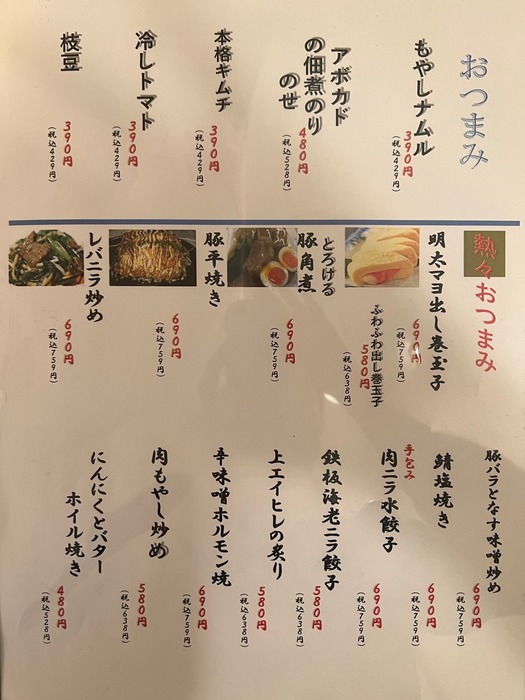 おつまみ
もやしナムル
390円
(税込429円)
アボカド
の佃煮のり
のせ
480円
(税込528円)
本格キムチ
390円
(税込429円)
冷しトマト
390円
(税込429円)
枝豆
390円
(税込429円)
熱々おつまみ
明太マヨ出し巻玉子
690円
(税込759円)
ふわふわ出し巻玉子
580円
(税込638円)
とろける
豚角煮
690円
(税込759円)
豚平焼き
690円
(税込759円)
レバニラ炒め
690円
(税込759円)
豚バラとなす味噌炒め
690円
(税込759円)
鯖塩焼き
690円
(税込759円)
手包み
肉ニラ水餃子
690円
(税込759円)
鉄板海老ニラ餃子
580円
(税込638円)
上エイヒレの炙り
580円
(税込638円)
辛味噌ホルモン焼
690円
(税込759円)
肉もやし炒め
580円
(税込638円)
にんにくとバター
ホイル焼き
480円
(税込528円)